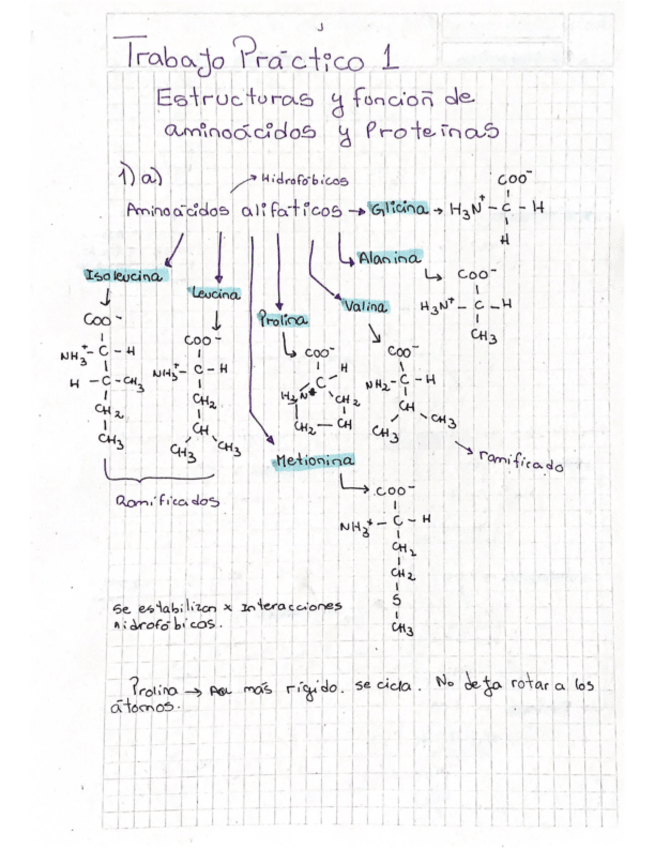 Trabajo Práctico 1
Estructuras y función de
aminoácidos y Proteínas
1) a)
Hidrofóbicos
Aminoácidos alifáticos → Glicina → H₃N⁺ – C – H
COO⁻
H
Alanina
COO⁻
H₃N⁺ – C – H
CH₃
Isoleucina
COO⁻
NH₃⁺ – C – H
H – C – CH₃
CH₂
CH₃
Leucina
COO⁻
NH₃⁺ – C – H
CH₂
CH
CH₃ CH₃
Ramificados
Prolina
COO⁻
C H
H₂N⁺ CH₂
CH₂ – CH
Valina
COO⁻
NH₂ – C – H
CH
CH₃ CH₃
ramificado
Metionina
COO⁻
NH₃⁺ – C – H
CH₂
CH₂
S
CH₃
Se estabilizan x interacciones
hidrofóbicas.
Prolina → más rígido. se cicla. No deja rotar a los
átomos.